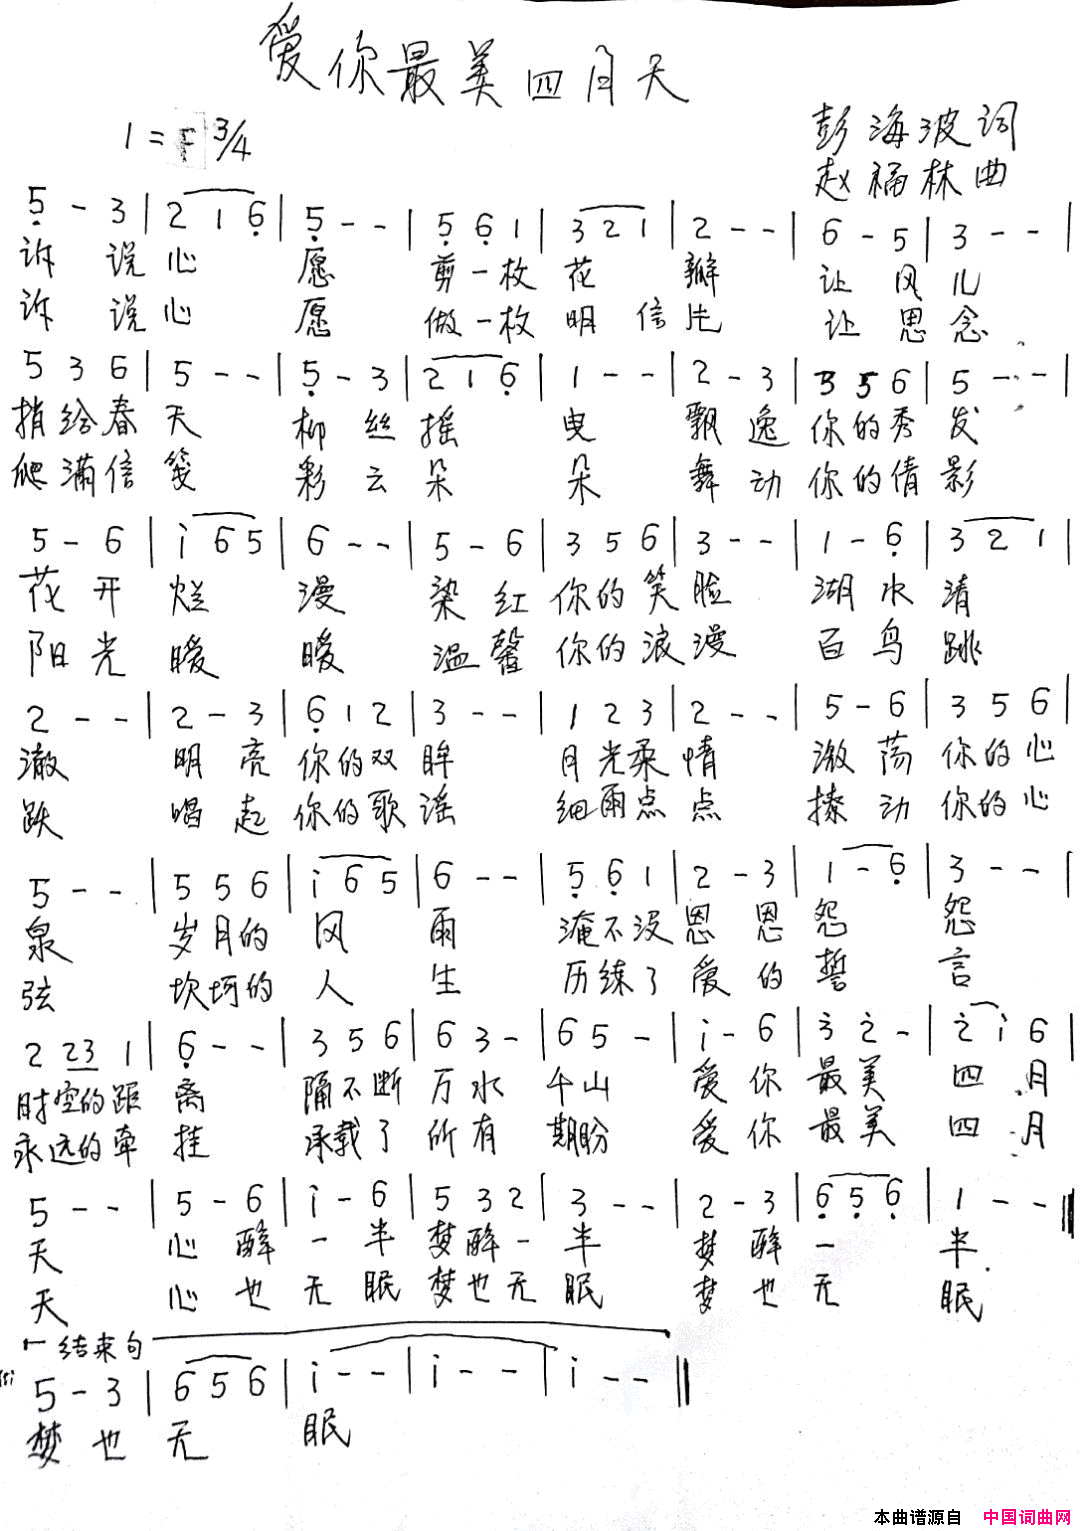 爱你最美四月天
1=F 3/4
彭海波词
赵福林曲
5̣ - 3 | 2 1 6̣ | 5̣ - - | 5̣ 6̣ 1 | 3 2 1 | 2 - - | 6 - 5 | 3 - - |
诉 说 心 愿 剪一枚 花 瓣 让 风 儿
诉 说 心 愿 做一枚 明信片 让 思 念
5 3 6 | 5 - - | 5̣ - 3 | 2 1 6̣ | 1 - - | 2 - 3 | 3 5 6 | 5 - - |
捎给春 天 柳 丝 摇 曳 飘 逸 你的秀 发
爬满信 笺 彩 云 朵 朵 舞 动 你的倩 影
5 - 6 | i 6 5 | 6 - - | 5 - 6 | 3 5 6 | 3 - - | 1 - 6̣ | 3 2 1 |
花 开 烂 漫 染 红 你的笑 脸 湖 水 清
阳 光 暖 暖 温 馨 你的浪 漫 百 鸟 跳
2 - - | 2 - 3 | 6̣ 1 2 | 3 - - | 1 2 3 | 2 - - | 5 - 6 | 3 5 6 |
澈 明 亮 你的双 眸 月光柔 情 激 荡 你的心
跃 唱 起 你的歌 谣 细雨点 点 撩 动 你的心
5 - - | 5 5 6 | i 6 5 | 6 - - | 5̣ 6̣ 1 | 2 - 3 | 1 - 6̣ | 3 - - |
泉 岁月的 风 雨 淹不没 恩 恩 怨 怨
弦 坎坷的 人 生 历练了 爱 的 誓 言
2 23 1 | 6̣ - - | 3 5 6 | 6 3 - | 6 5 - | i - 6 | 3̇ 2̇ - | 2̇ i 6 |
时空的距 离 隔不断 万水 千山 爱 你 最美 四 月
永远的牵 挂 承载了 所有 期盼 爱 你 最美 四 月
5 - - | 5 - 6 | i - 6 | 5 3 2 | 3 - - | 2 - 3 | 6̣ 5̣ 6̣ | 1 - - ‖
天 心 醉 一 半 梦醉一 半 梦 醉 一 半
天 心 也 无 眠 梦也无 眠 梦 也 无 眠
结束句
5 - 3 | 6 5 6 | i - - | i - - | i - - ‖
梦 也 无 眠
本曲谱源自 中国词曲网